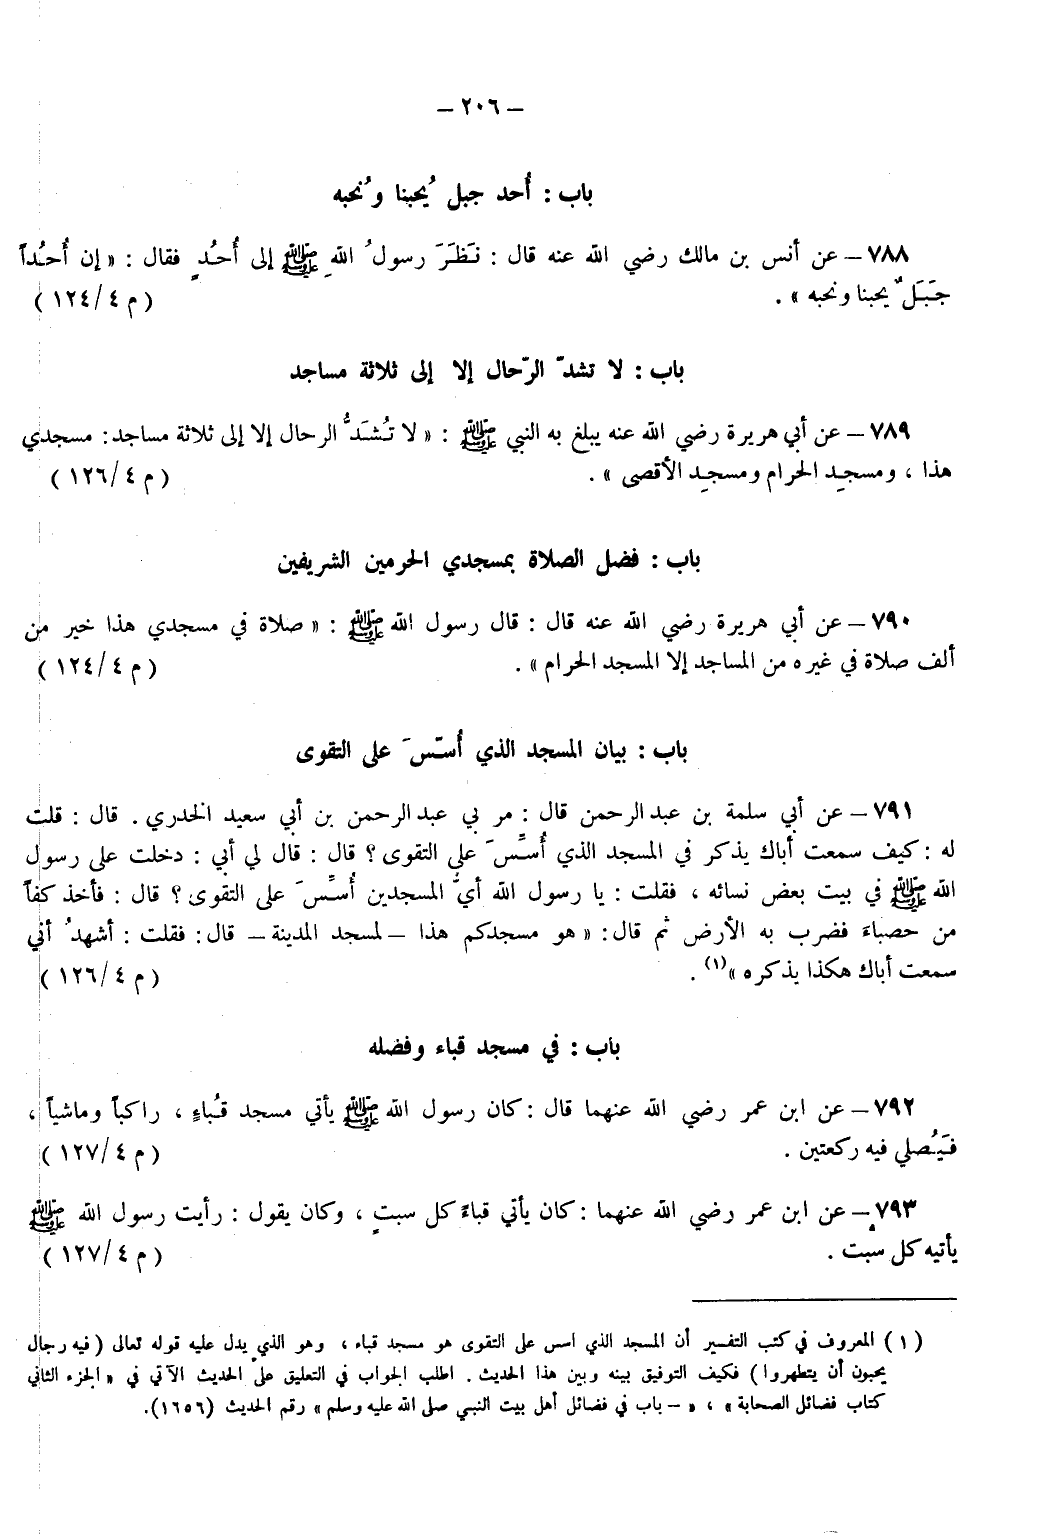 – ٢٠٦ –
باب : أُحد جبل يُحبنا ونُحبه
٧٨٨ – عن أنس بن مالك رضي الله عنه قال : نَظَرَ رسولُ اللهِ ﷺ إلى أُحُدٍ فقال : « إن أُحُداً
جَبَلٌ يحبنا ونحبه » . ( م ٤/١٢٤ )
باب : لا تشدّ الرّحال إلا إلى ثلاثة مساجد
٧٨٩ – عن أبي هريرة رضي الله عنه يبلغ به النبي ﷺ : « لا تُشَدُّ الرحال إلا إلى ثلاثة مساجد : مسجدي
هذا ، ومسجدِ الحرام ومسجدِ الأقصى » . ( م ٤/١٢٦ )
باب : فضل الصلاة بمسجدي الحرمين الشريفين
٧٩٠ – عن أبي هريرة رضي الله عنه قال : قال رسول الله ﷺ : « صلاة في مسجدي هذا خير من
ألف صلاة في غيره من المساجد إلا المسجد الحرام » . ( م ٤/١٢٤ )
باب : بيان المسجد الذي أُسّسَ على التقوى
٧٩١ – عن أبي سلمة بن عبد الرحمن قال : مر بي عبد الرحمن بن أبي سعيد الخدري . قال : قلت
له : كيف سمعت أباك يذكر في المسجد الذي أُسِّسَ على التقوى ؟ قال : قال لي أبي : دخلت على رسول
الله ﷺ في بيت بعض نسائه ، فقلت : يا رسول الله أيُّ المسجدين أُسِّسَ على التقوى ؟ قال : فأخذ كفاً
من حصباءَ فضرب به الأرض ثم قال : « هو مسجدكم هذا – لمسجد المدينة – قال : فقلت : أشهدُ أني
سمعت أباك هكذا يذكره »(١) . ( م ٤/١٢٦ )
باب : في مسجد قباء وفضله
٧٩٢ – عن ابن عمر رضي الله عنهما قال : كان رسول الله ﷺ يأتي مسجد قُباءٍ ، راكباً وماشياً ،
فَيُصلي فيه ركعتين . ( م ٤/١٢٧ )
٧٩٣ – عن ابن عمر رضي الله عنهما : كان يأتي قباءً كل سبتٍ ، وكان يقول : رأيت رسول الله ﷺ
يأتيه كل سبت . ( م ٤/١٢٧ )
( ١ ) المعروف في كتب التفسير أن المسجد الذي اسس على التقوى هو مسجد قباء ، وهو الذي يدل عليه قوله تعالى ( فيه رجال
يحبون أن يتطهروا ) فكيف التوفيق بينه وبين هذا الحديث . اطلب الجواب في التعليق على الحديث الآتي في « الجزء الثاني
كتاب فضائل الصحابة » ، « – باب في فضائل أهل بيت النبي صلى الله عليه وسلم » رقم الحديث (١٦٥٦).